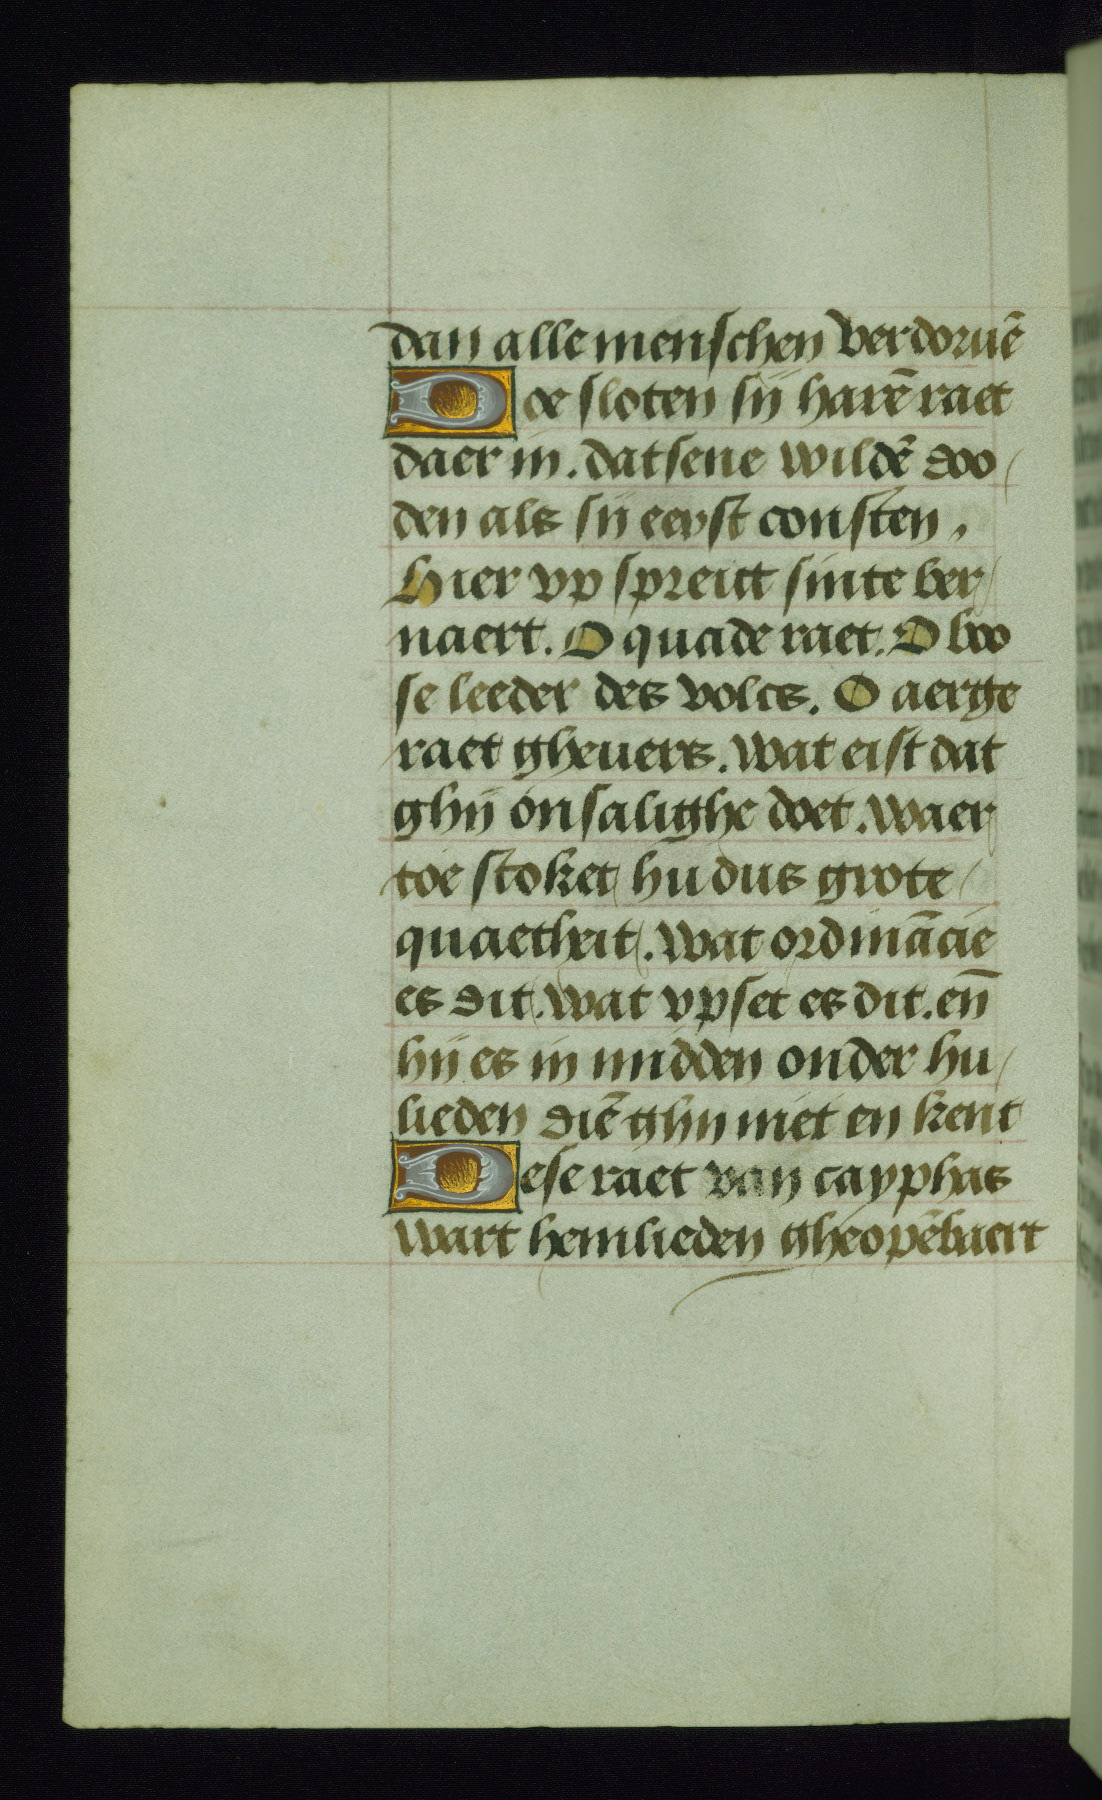 dan alle menschen verdoruē
Doe sloten sij harē raet
daer in. dat sene wildē doo
den als sij eerst consten,
Hier vp spreict sinte ber
naert. O quade raet. O boo
se leeder des volcs. O aerge
raet ghevers. wat eist dat
ghij onsalighe doet. waer
toe stoket hu dus grote
quaetheit. wat ordinācie
es dit. wat vpset es dit. eñ
hij es in midden onder hu
lieden diē ghij niet en kent
Dese raet van cayphas
wart hemlieden gheopēbaert